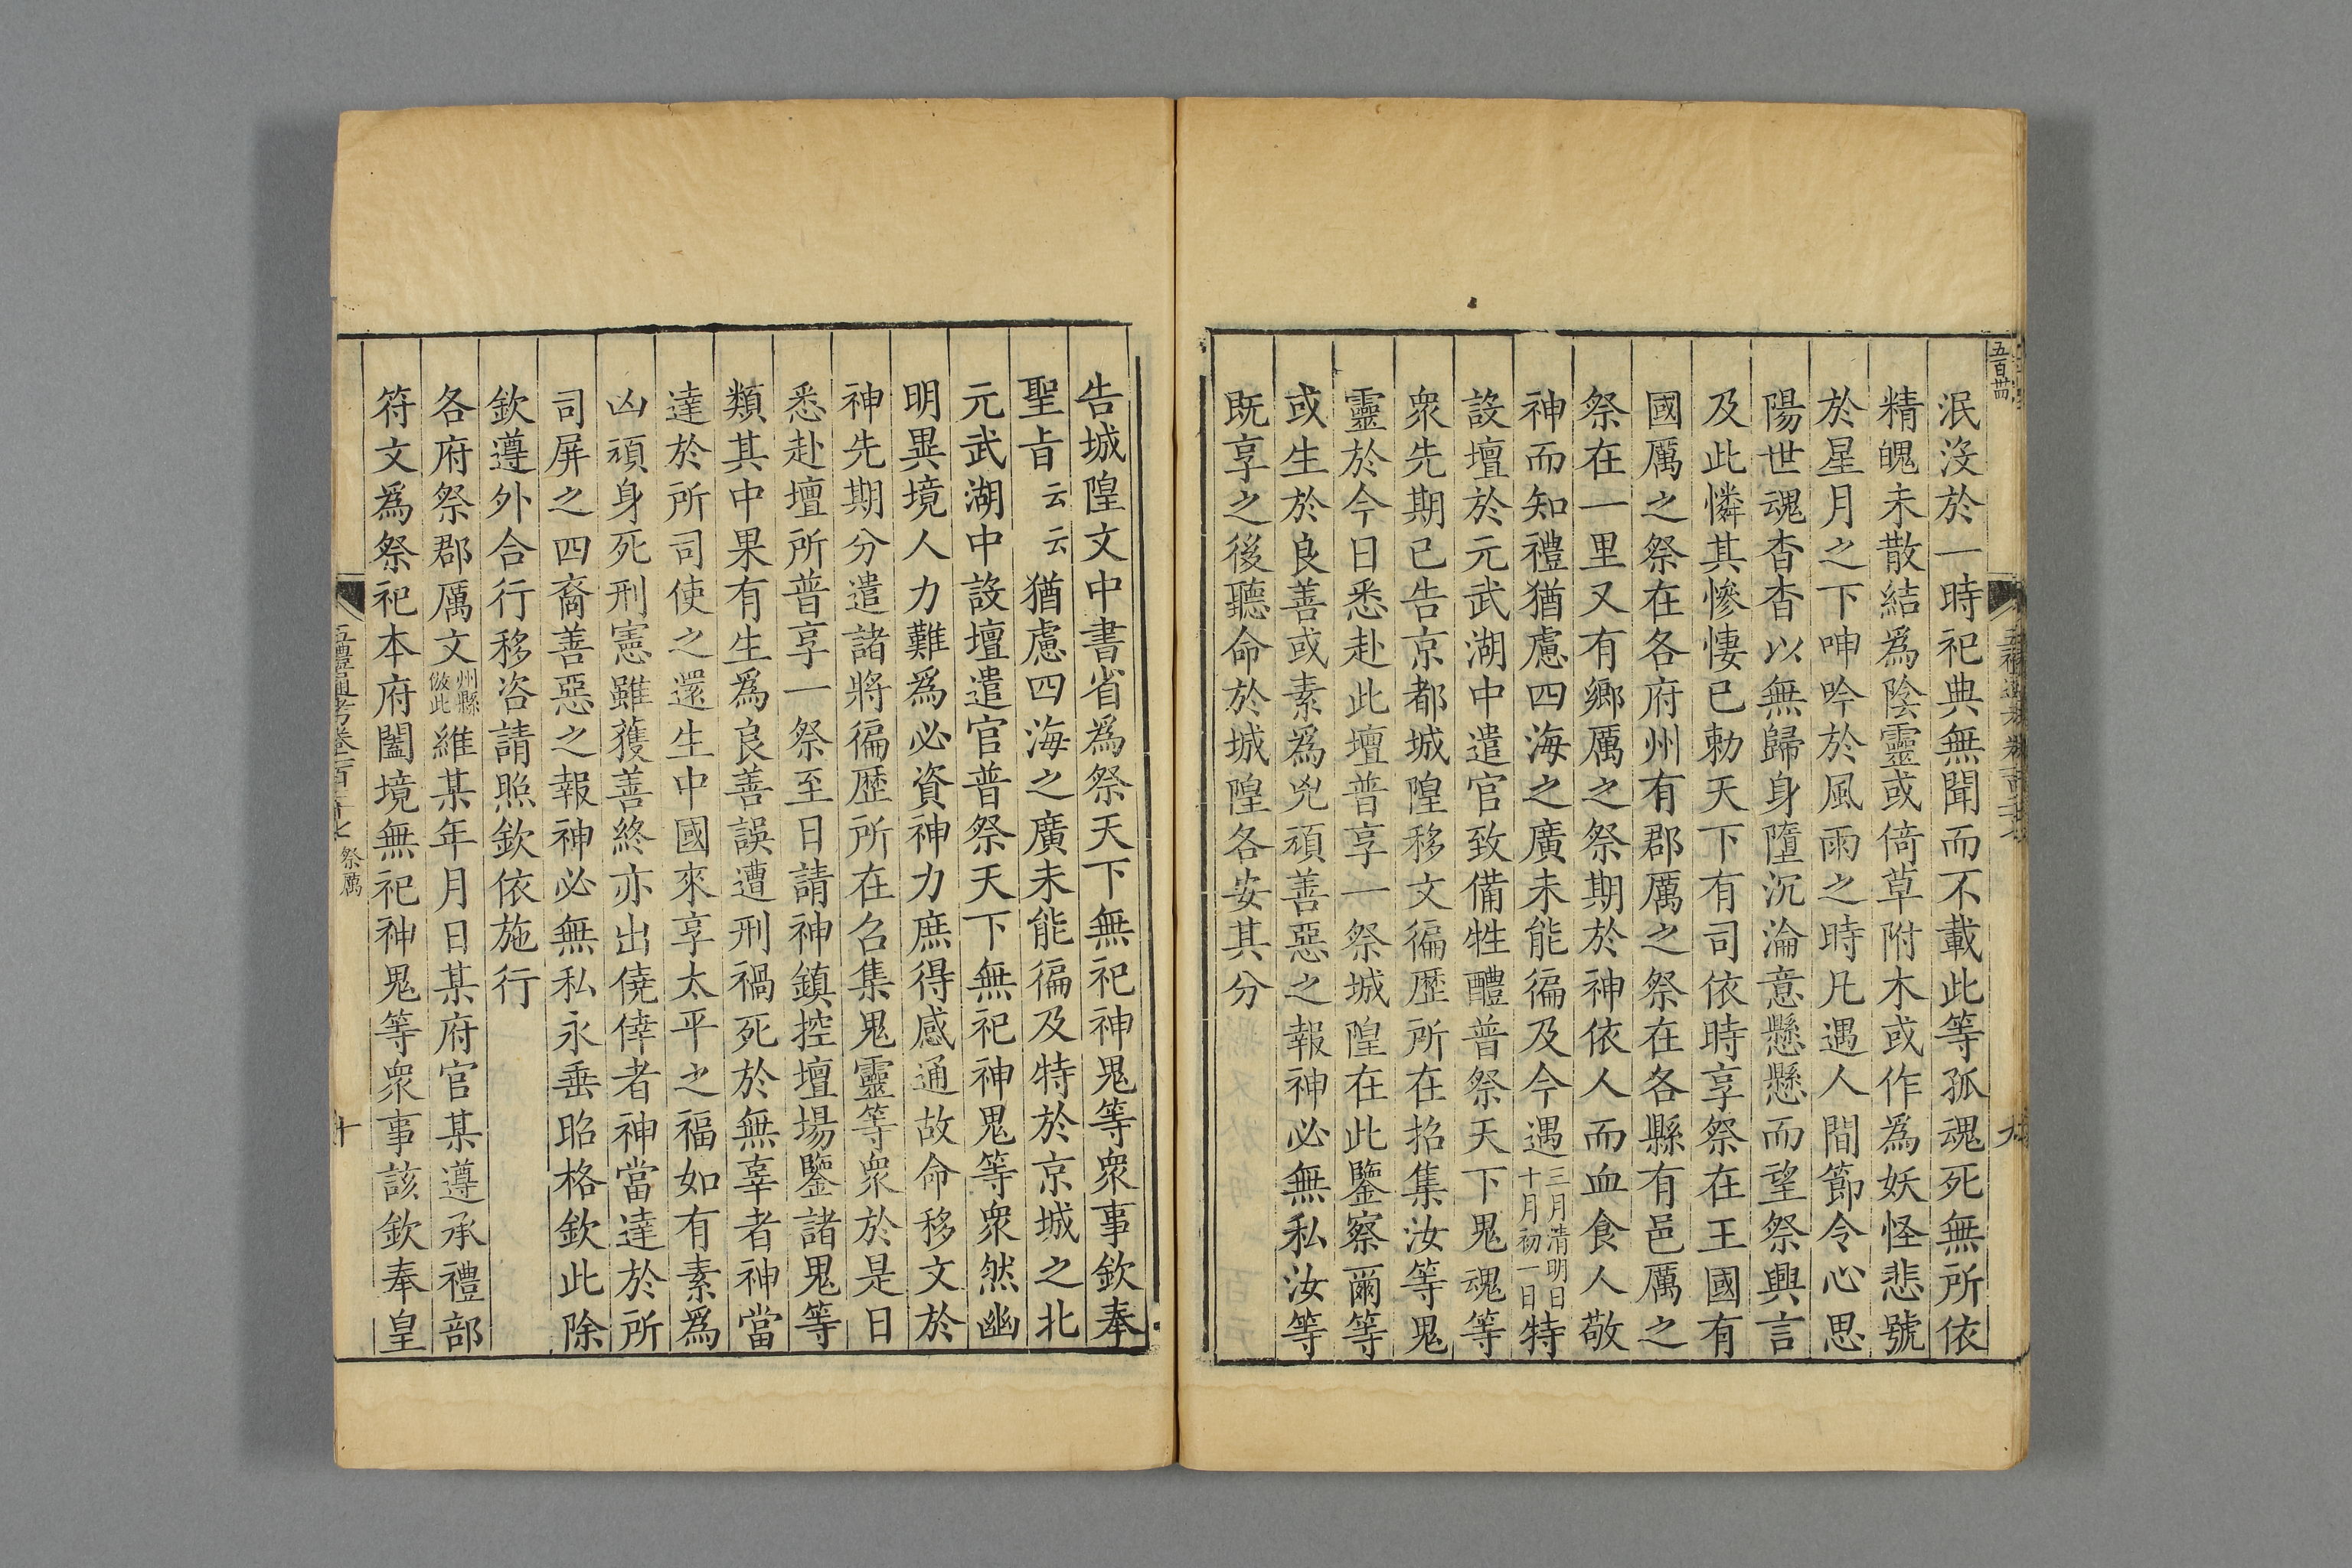 五百卌
泯沒於一時祀典無聞而不載此等孤魂死無所依
精魄未散結爲陰靈或倚草附木或作爲妖怪悲號
於星月之下呻吟於風雨之時凡遇人間節令心思
陽世魂杳杳以無歸身墮沉淪意懸懸而望祭興言
及此憐其慘悽已勅天下有司依時享祭在王國有
國厲之祭在各府州有郡厲之祭在各縣有邑厲之
祭在一里又有鄉厲之祭期於神依人而血食人敬
神而知禮猶慮四海之廣未能徧及今遇三月清明日十月初一日特
設壇於元武湖中遣官致備牲醴普祭天下鬼魂等
衆先期已告京都城隍移文徧歷所在招集汝等鬼
靈於今日悉赴此壇普享一祭城隍在此鑒察爾等
或生於良善或素爲兇頑善惡之報神必無私汝等
既享之後聽命於城隍各安其分
告城隍文中書省爲祭天下無祀神鬼等衆事欽奉
聖旨云云猶慮四海之廣未能徧及特於京城之北
元武湖中設壇遣官普祭天下無祀神鬼等衆然幽
明異境人力難爲必資神力庶得感通故命移文於
神先期分遣諸將徧歷所在召集鬼靈等衆於是日
悉赴壇所普享一祭至日請神鎮控壇場鑒諸鬼等
類其中果有生爲良善誤遭刑禍死於無辜者神當
達於所司使之還生中國來享太平之福如有素爲
凶頑身死刑憲雖獲善終亦出僥倖者神當達於所
司屏之四裔善惡之報神必無私永垂昭格欽此除
欽遵外合行移咨請照欽依施行
各府祭郡厲文州縣倣此維某年月日某府官某遵承禮部
符文爲祭祀本府闔境無祀神鬼等衆事該欽奉皇
五禮通考卷一百二十七 祭厲 十